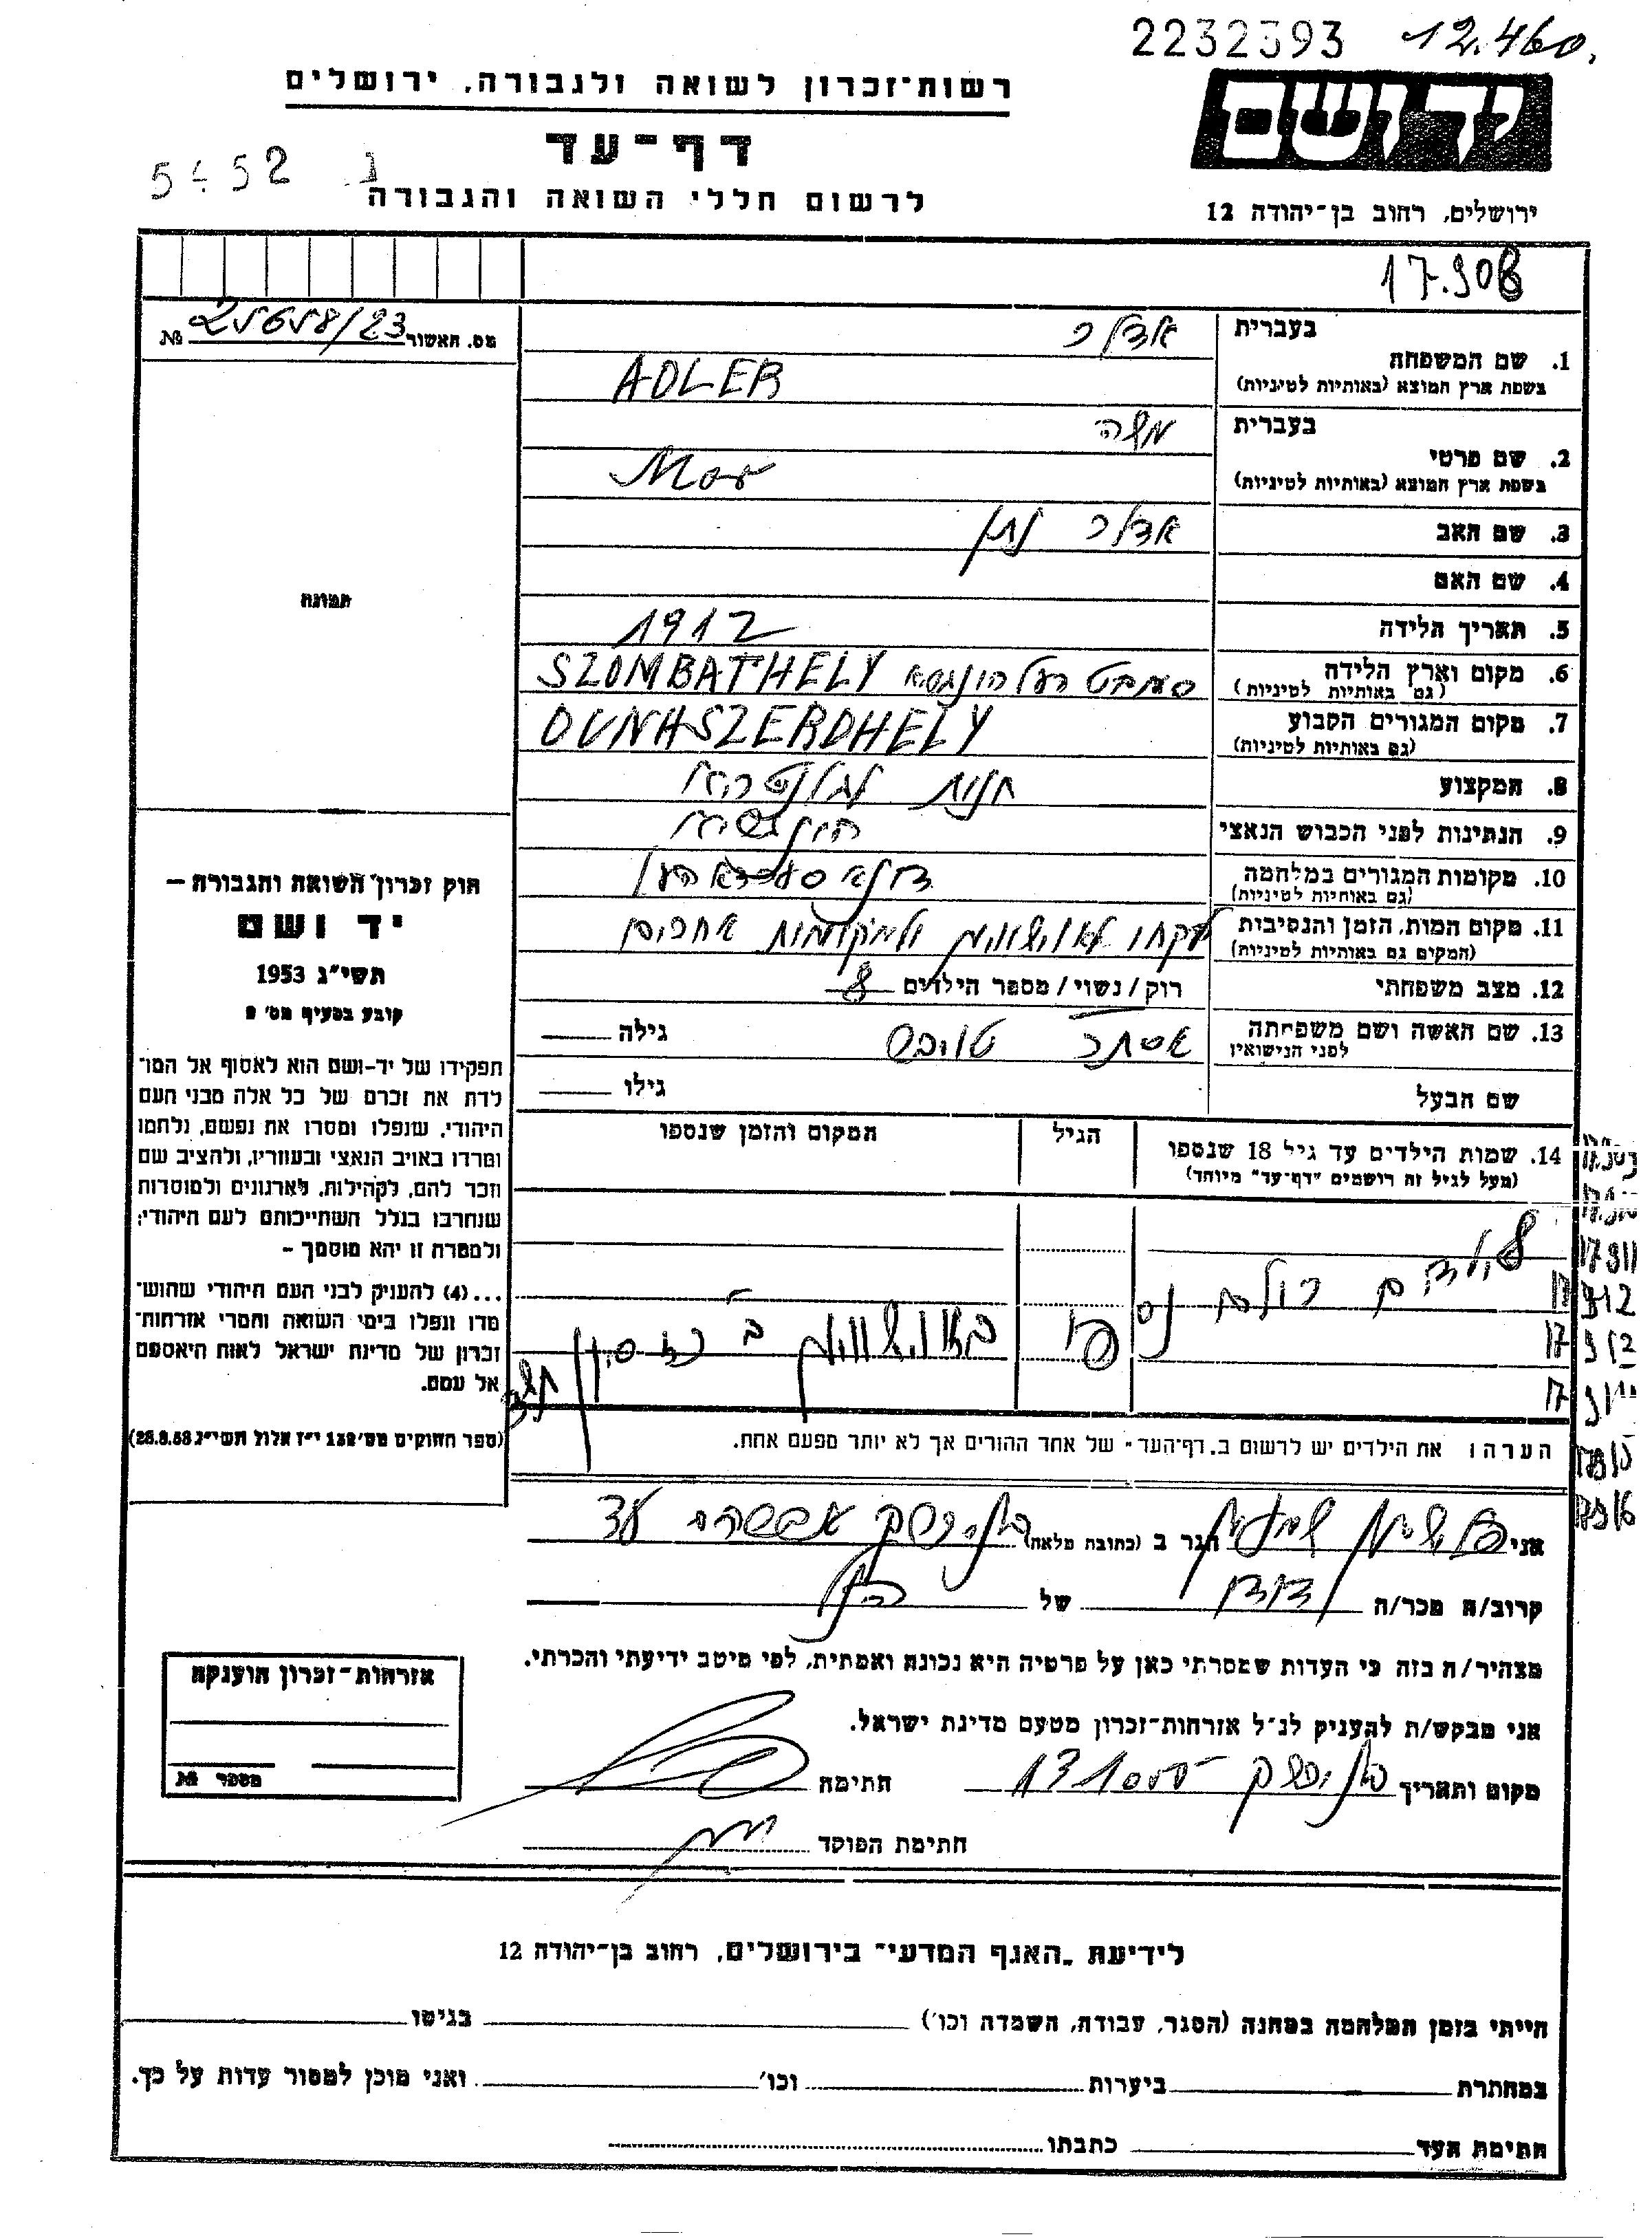 2232393 12.460.
רשות־זכרון לשואה ולגבורה, ירושלים
יד ושם
דף־עד
5452 נ
לרשום חללי השואה והגבורה
ירושלים, רחוב בן־יהודה 12
17.908
מס. האשור 25658/23 №
בעברית אדלר
1. שם המשפחה
בשפת ארץ המוצא (באותיות לטיניות) ADLER
בעברית משה
2. שם פרטי
בשפת ארץ המוצא (באותיות לטיניות) Mor
3. שם האב אדלר נתן
4. שם האם
תמונה
5. תאריך הלידה 1912
6. מקום וארץ הלידה SZOMBATHELY
(גם באותיות לטיניות)
7. מקום המגורים הקבוע DUNASZERDHELY
(גם באותיות לטיניות)
8. המקצוע חנות לגלנטריה
9. הנתינות לפני הכבוש הנאצי
10. מקומות המגורים במלחמה
(גם באותיות לטיניות)
11. מקום המות, הזמן והנסיבות לקחו לאושוויץ ולמקומות אחרים
(המקום גם באותיות לטיניות)
12. מצב משפחתי רוק/נשוי/מספר הילדים 8
13. שם האשה ושם משפחתה אסתר גילה
לפני הנישואין
שם הבעל גילו
14. שמות הילדים עד גיל 18 שנספו הגיל המקום והזמן שנספו
(מעל לגיל זה רושמים "דף־עד" מיוחד)
8 ילדים כולם נספו באושוויץ
17 911
17 912
הערה: את הילדים יש לרשום ב„דף־העד" של אחד ההורים אך לא יותר מפעם אחת.
חוק זכרון השואה והגבורה –
יד ושם
תשי"ג 1953
קובע בסעיף מס' 2
תפקידו של יד־ושם הוא לאסוף אל המו־
לדת את זכרם של כל אלה מבני העם
היהודי, שנפלו ומסרו את נפשם, נלחמו
ומרדו באויב הנאצי ובעוזריו, ולהציב שם
וזכר להם, לקהילות, לארגונים ולמוסדות
שנחרבו בגלל השתייכותם לעם היהודי;
ולמטרת זו יהא מוסמך –
...(4) להעניק לבני העם היהודי שהוש־
מדו ונפלו בימי השואה והמרי אזרחות־
זכרון של מדינת ישראל לאות היאספם
אל עמם.
(ספר החוקים מס' 132 י"ז אלול תשי"ג 28.8.53)
אני הגר ב (כתובת מלאה)
קרוב/ה מכר/ה דודן של
מצהיר/ה בזה כי העדות שמסרתי כאן על פרטיה היא נכונה ואמתית, לפי מיטב ידיעתי והכרתי.
אני מבקש/ת להעניק לנ"ל אזרחות־זכרון מטעם מדינת ישראל.
מקום ותאריך חתימה
חתימת הפוקד
אזרחות־זכרון הוענקה
מספר №
לידיעת „האגף המדעי" בירושלים, רחוב בן־יהודה 12
הייתי בזמן המלחמה במחנה (הסגר, עבודה, השמדה וכו') בגיטו
במחתרת ביערות וכו' ואני מוכן למסור עדות על כך.
חתימת העד כתבתו